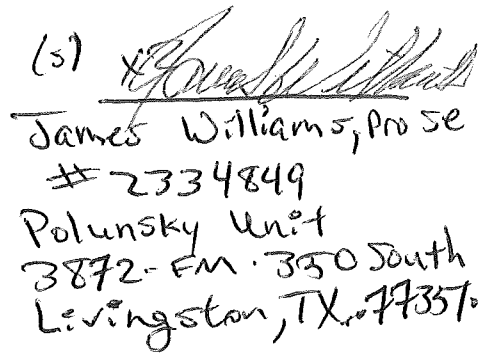 (s) x
James Williams, pro se
# 2334849
Polunsky Unit
3872-FM. 350 South
Livingston, TX. 77351.